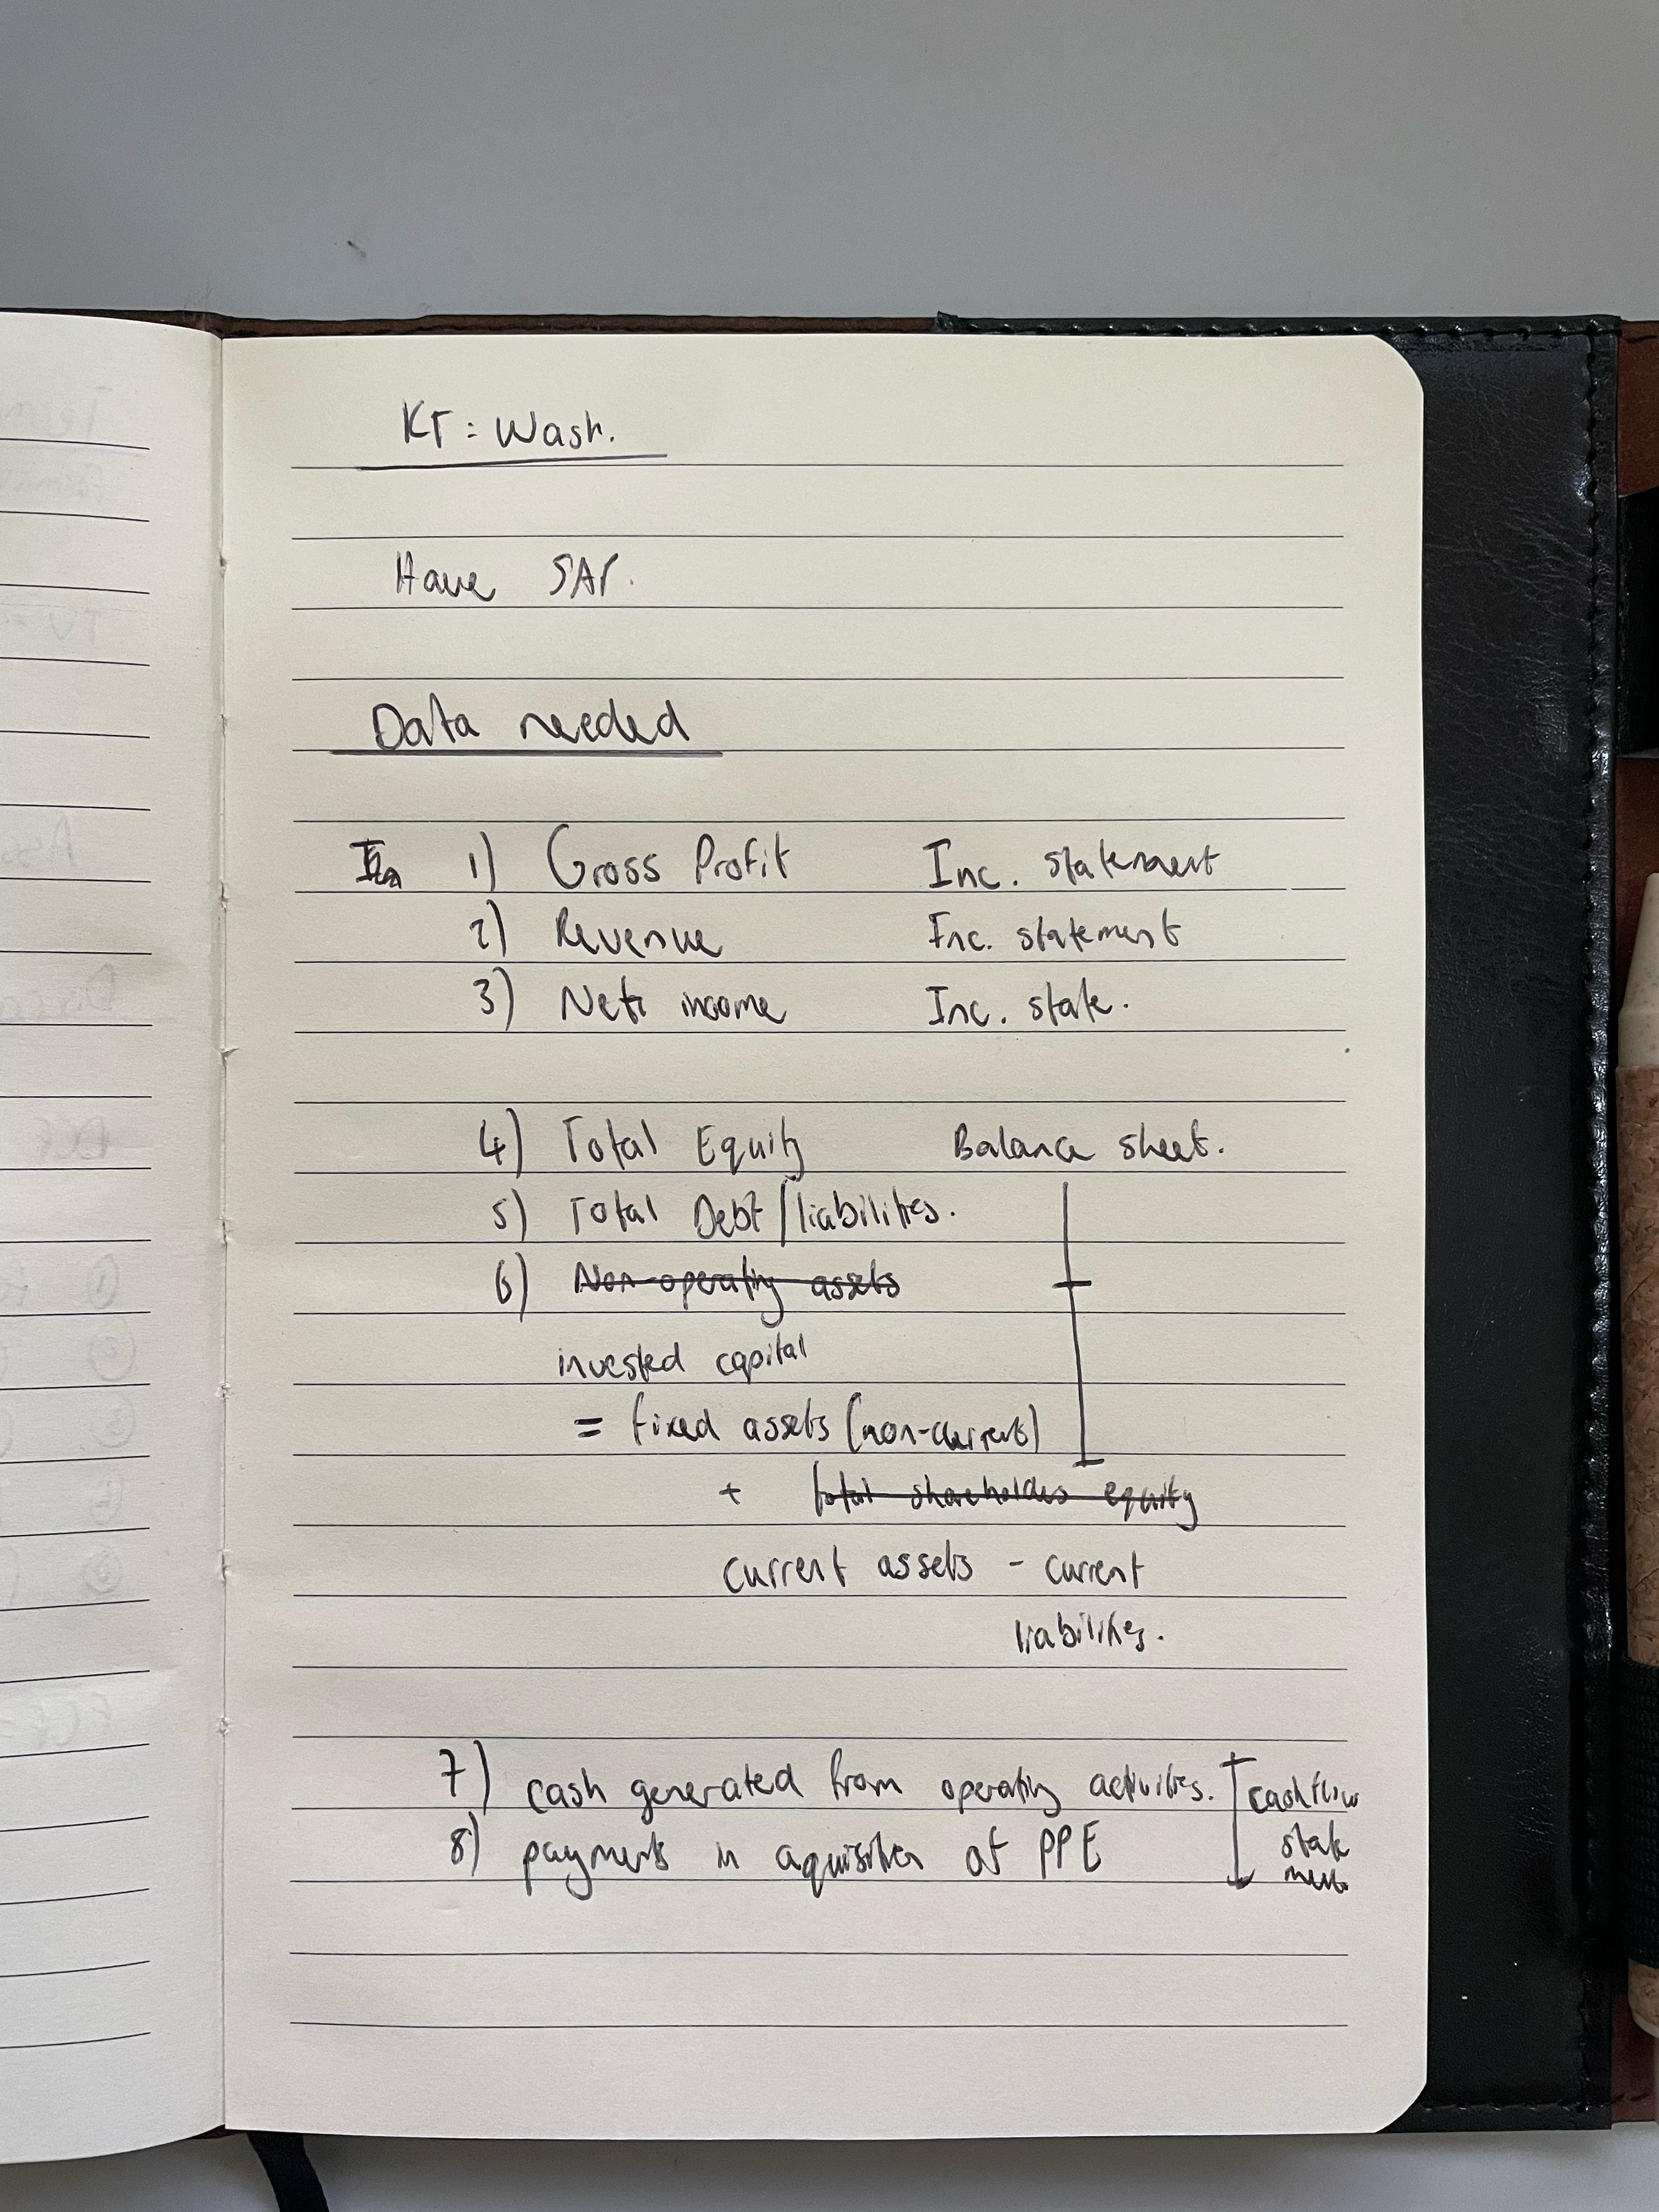 KT: Wash.
Have SAP.
Data needed
1) Gross Profit Inc. statement
2) Revenue Inc. statement
3) Net income Inc. state.
4) Total Equity Balance sheet.
5) Total Debt/liabilities.
6) Non-operating assets
invested capital
= fixed assets (non-current)
+ total shareholders equity
current assets - current
liabilities.
7) cash generated from operating activities. cashflow
8) payments in aquisition of PPE state
ment